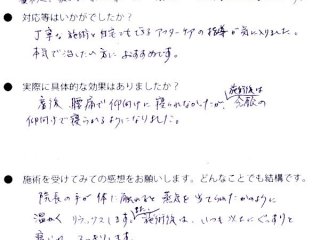 ● 対応等はいかがでしたか？
丁寧な施術と自宅でもできるアフターケアの指導が気に入りました。
本気で治したい方におすすめです。
● 実際に具体的な効果はありましたか？
産後、腰痛で仰向けに寝られなかったが、施術後は
仰向けで寝られるようになりました。
● 施術を受けてみての感想をお願いします。どんなことでも結構です。
院長の手が体に触れると蒸気を当てられたかのように
温かく リラックスします。また、施術後は、いつも以上にぐっすりと